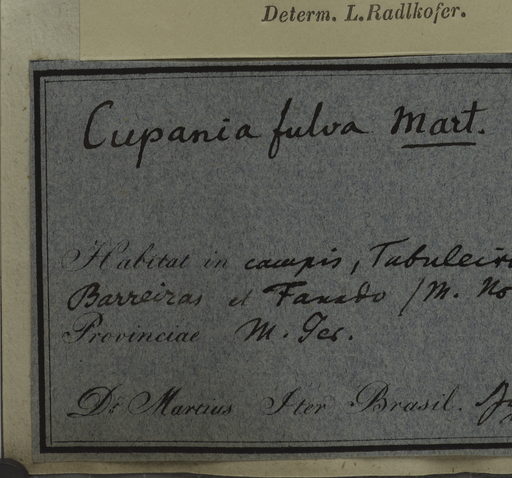 Determ. L. Radlkofer.
Cupania fulva Mart.
Habitat in campis, Tabuleiro
Barreiras et Fanado / M. No
Provinciae M. Ger.
Dr Martius Iter Brasil.